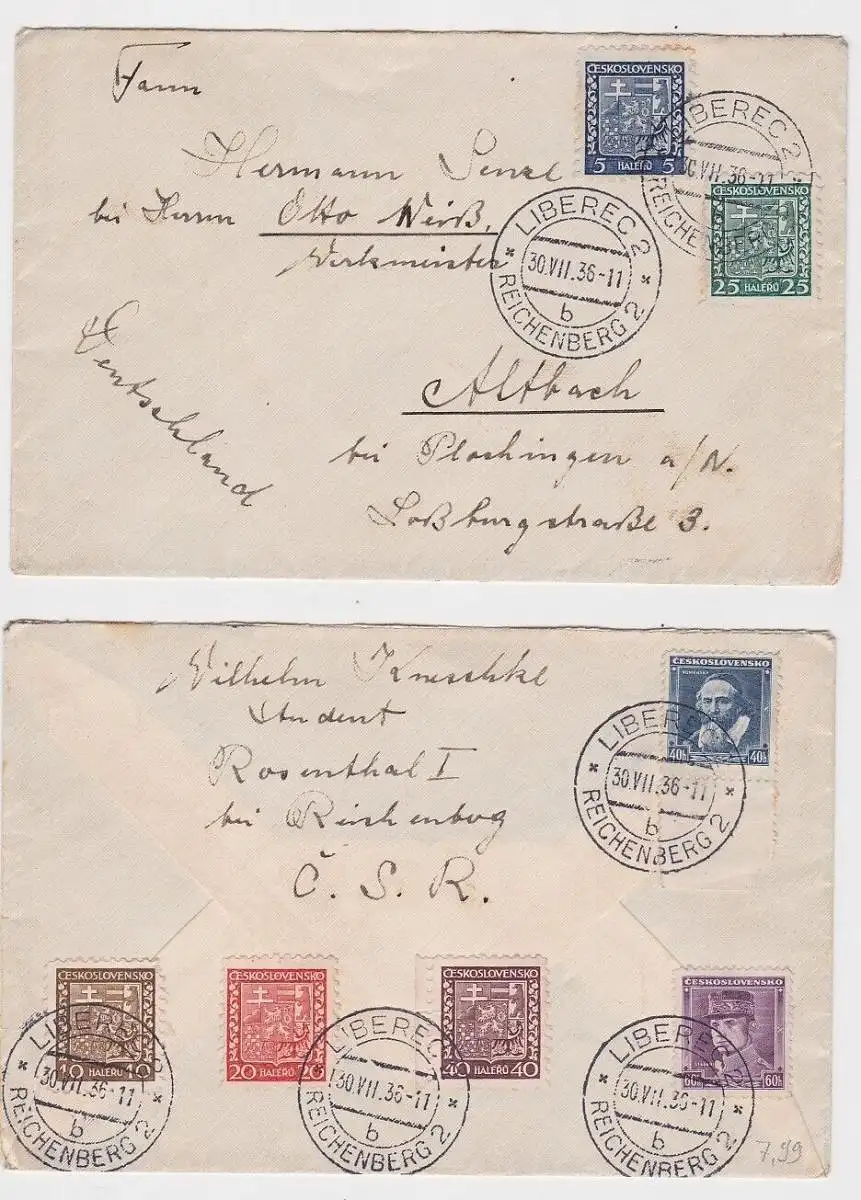 Hermann
bei Herrn Otto Weiß,
Werkmeister
Deutschland
Altbach
bei Plochingen a/N.
Loßburgstraße 3.
ČESKOSLOVENSKO
5 HALERŮ 5
ČESKOSLOVENSKO
25 HALERŮ 25
LIBEREC 2
30.VII.36-11
REICHENBERG 2
LIBEREC 2
30.VII.36-11
b
REICHENBERG 2
Wilhelm Kneschke
Student
Rosenthal I
bei Reichenberg
Č. S. R.
ČESKOSLOVENSKO
KOMENSKÝ
40h 40h
LIBEREC 2
30.VII.36-11
b
REICHENBERG 2
ČESKOSLOVENSKO
10 HALERŮ 10
LIBEREC 2
30.VII.36-11
b
REICHENBERG 2
ČESKOSLOVENSKO
20 HALERŮ 20
ČESKOSLOVENSKO
40 HALERŮ 40
LIBEREC 2
30.VII.36-11
b
REICHENBERG 2
ČESKOSLOVENSKO
60h 60h
LIBEREC 2
30.VII.36-11
b
REICHENBERG 2
7,99